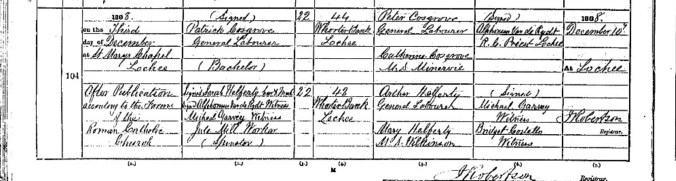 1908. (Signed) 22 44 Peter Cosgrove (Signed) 1908.
on the Third Patrick Cosgrove Whorterbank General Labourer Alphonsus Van de Rydt December 10th
day of December General Labourer Lochee R.C. Priest Lochee
at St Marys Chapel Catherine Cosgrove
Lochee (Bachelor) M.S. At Lochee
104
After Publication Signed Sarah Helferty her X mark 22 48 Arthur Helferty (Signed)
according to the Forms Signed Alphonsus Van de Rydt Witness Whorterbank General Labourer Michael Garvey J Robertson
of the Michael Garvey Witness Lochee Witness Registrar.
Roman Catholic Jute Mill Worker Mary Helferty Bridget Costello
Church (Spinster) M.S. Wilkinson Witness
(1.) (2.) (3.) (4.) (5.) (6.) (7.)
M
J Robertson Registrar.